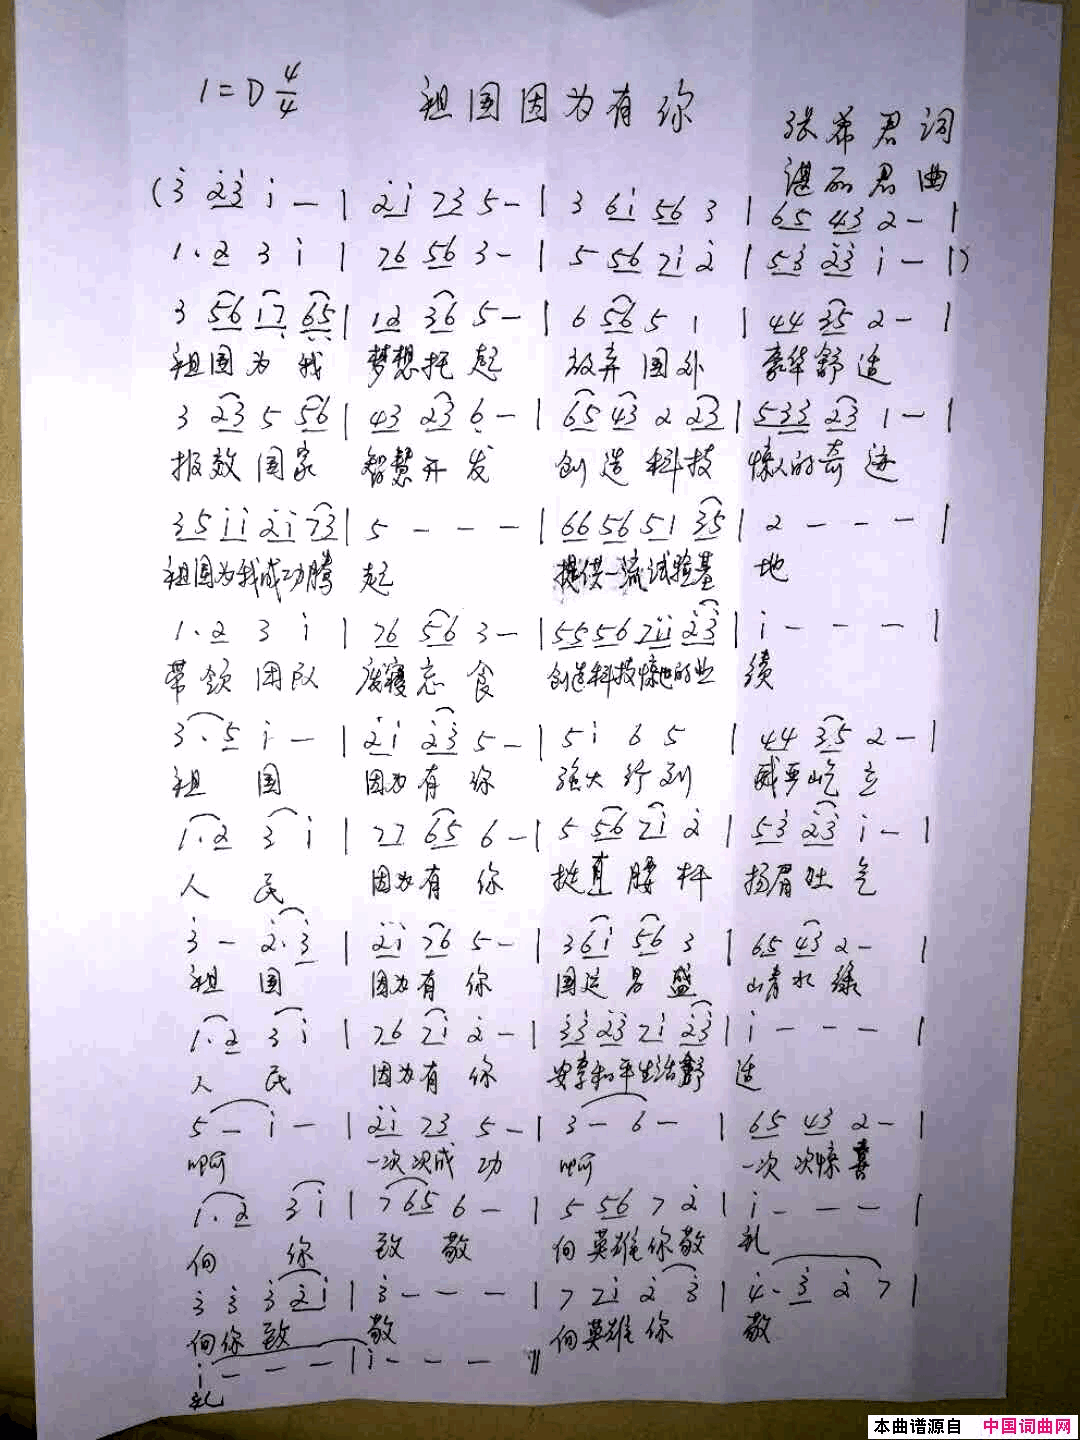 1=D 4/4 祖国因为有你
张希君词
谌丽君曲
(3 23 i — | 2i 73 5 — | 3 6i 56 3 | 65 43 2 — |
1. 2 3 i | 76 56 3 — | 5 56 7i 2 | 53 23 i — |)
3 56 17 65 | 12 36 5 — | 6 56 5 1 | 44 35 2 — |
祖国为我 梦想托起 放弃国外 豪华舒适
3 23 5 56 | 43 23 6 — | 65 43 2 23 | 533 23 1 — |
报效国家 智慧开发 创造科技 惊人的奇迹
35 ii 2i 73 | 5 — — — | 66 56 51 35 | 2 — — — |
祖国为我成功腾 起 提供一流试验基 地
1. 2 3 i | 76 56 3 — | 55 56 7ii 23 | i — — — |
带领团队 废寝忘食 创造科技惊地的业 绩
3. 5 i — | 2i 23 5 — | 5 i 6 5 | 44 35 2 — |
祖国 因为有你 强大行列 威严屹立
1. 2 3 i | 77 65 6 — | 5 56 7i 2 | 53 23 i — |
人民 因为有你 挺直腰杆 扬眉吐气
3 — 2. 3 | 2i 76 5 — | 3 6i 56 3 | 65 43 2 — |
祖国 因为有你 国运昌盛 山青水绿
1. 2 3 i | 76 7i 2 — | 33 23 7i 23 | i — — — |
人民 因为有你 安享和平生活舒 适
5 — i — | 2i 73 5 — | 3 — 6 — | 65 43 2 — |
啊 一次次成功 啊 一次次惊喜
1. 2 3 i | 7 65 6 — | 5 56 7 2 | i — — — |
向你 致敬 向英雄你敬 礼
3 3 3 2i | 3 — — — | 7 7i 2 3 | 4. 3 2 7 |
向你致 敬 向英雄你 敬
i — — — | i — — — ‖
礼
本曲谱源自 中国词曲网